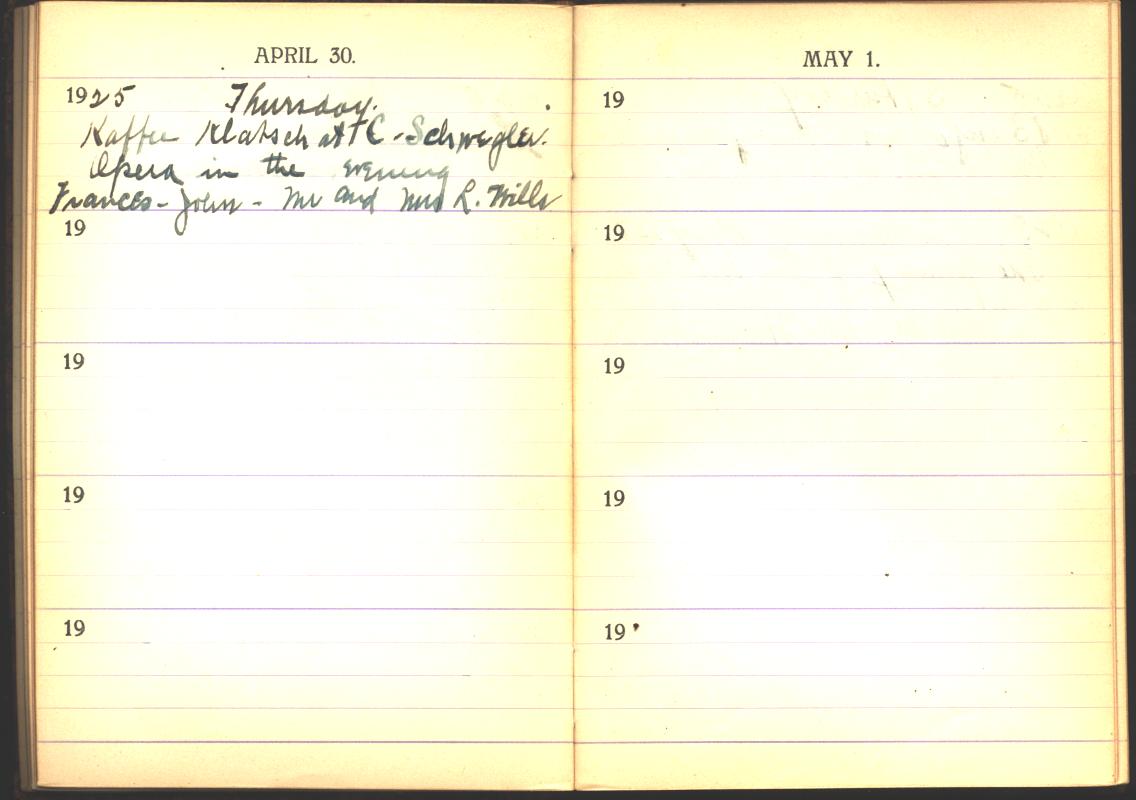 APRIL 30.
1925 Thursday.
Kaffee Klatsch at C. Schwegler.
Opera in the evening
Frances - John - Mr and Mrs R. Wills
19
19
19
19
MAY 1.
19
19
19
19
19